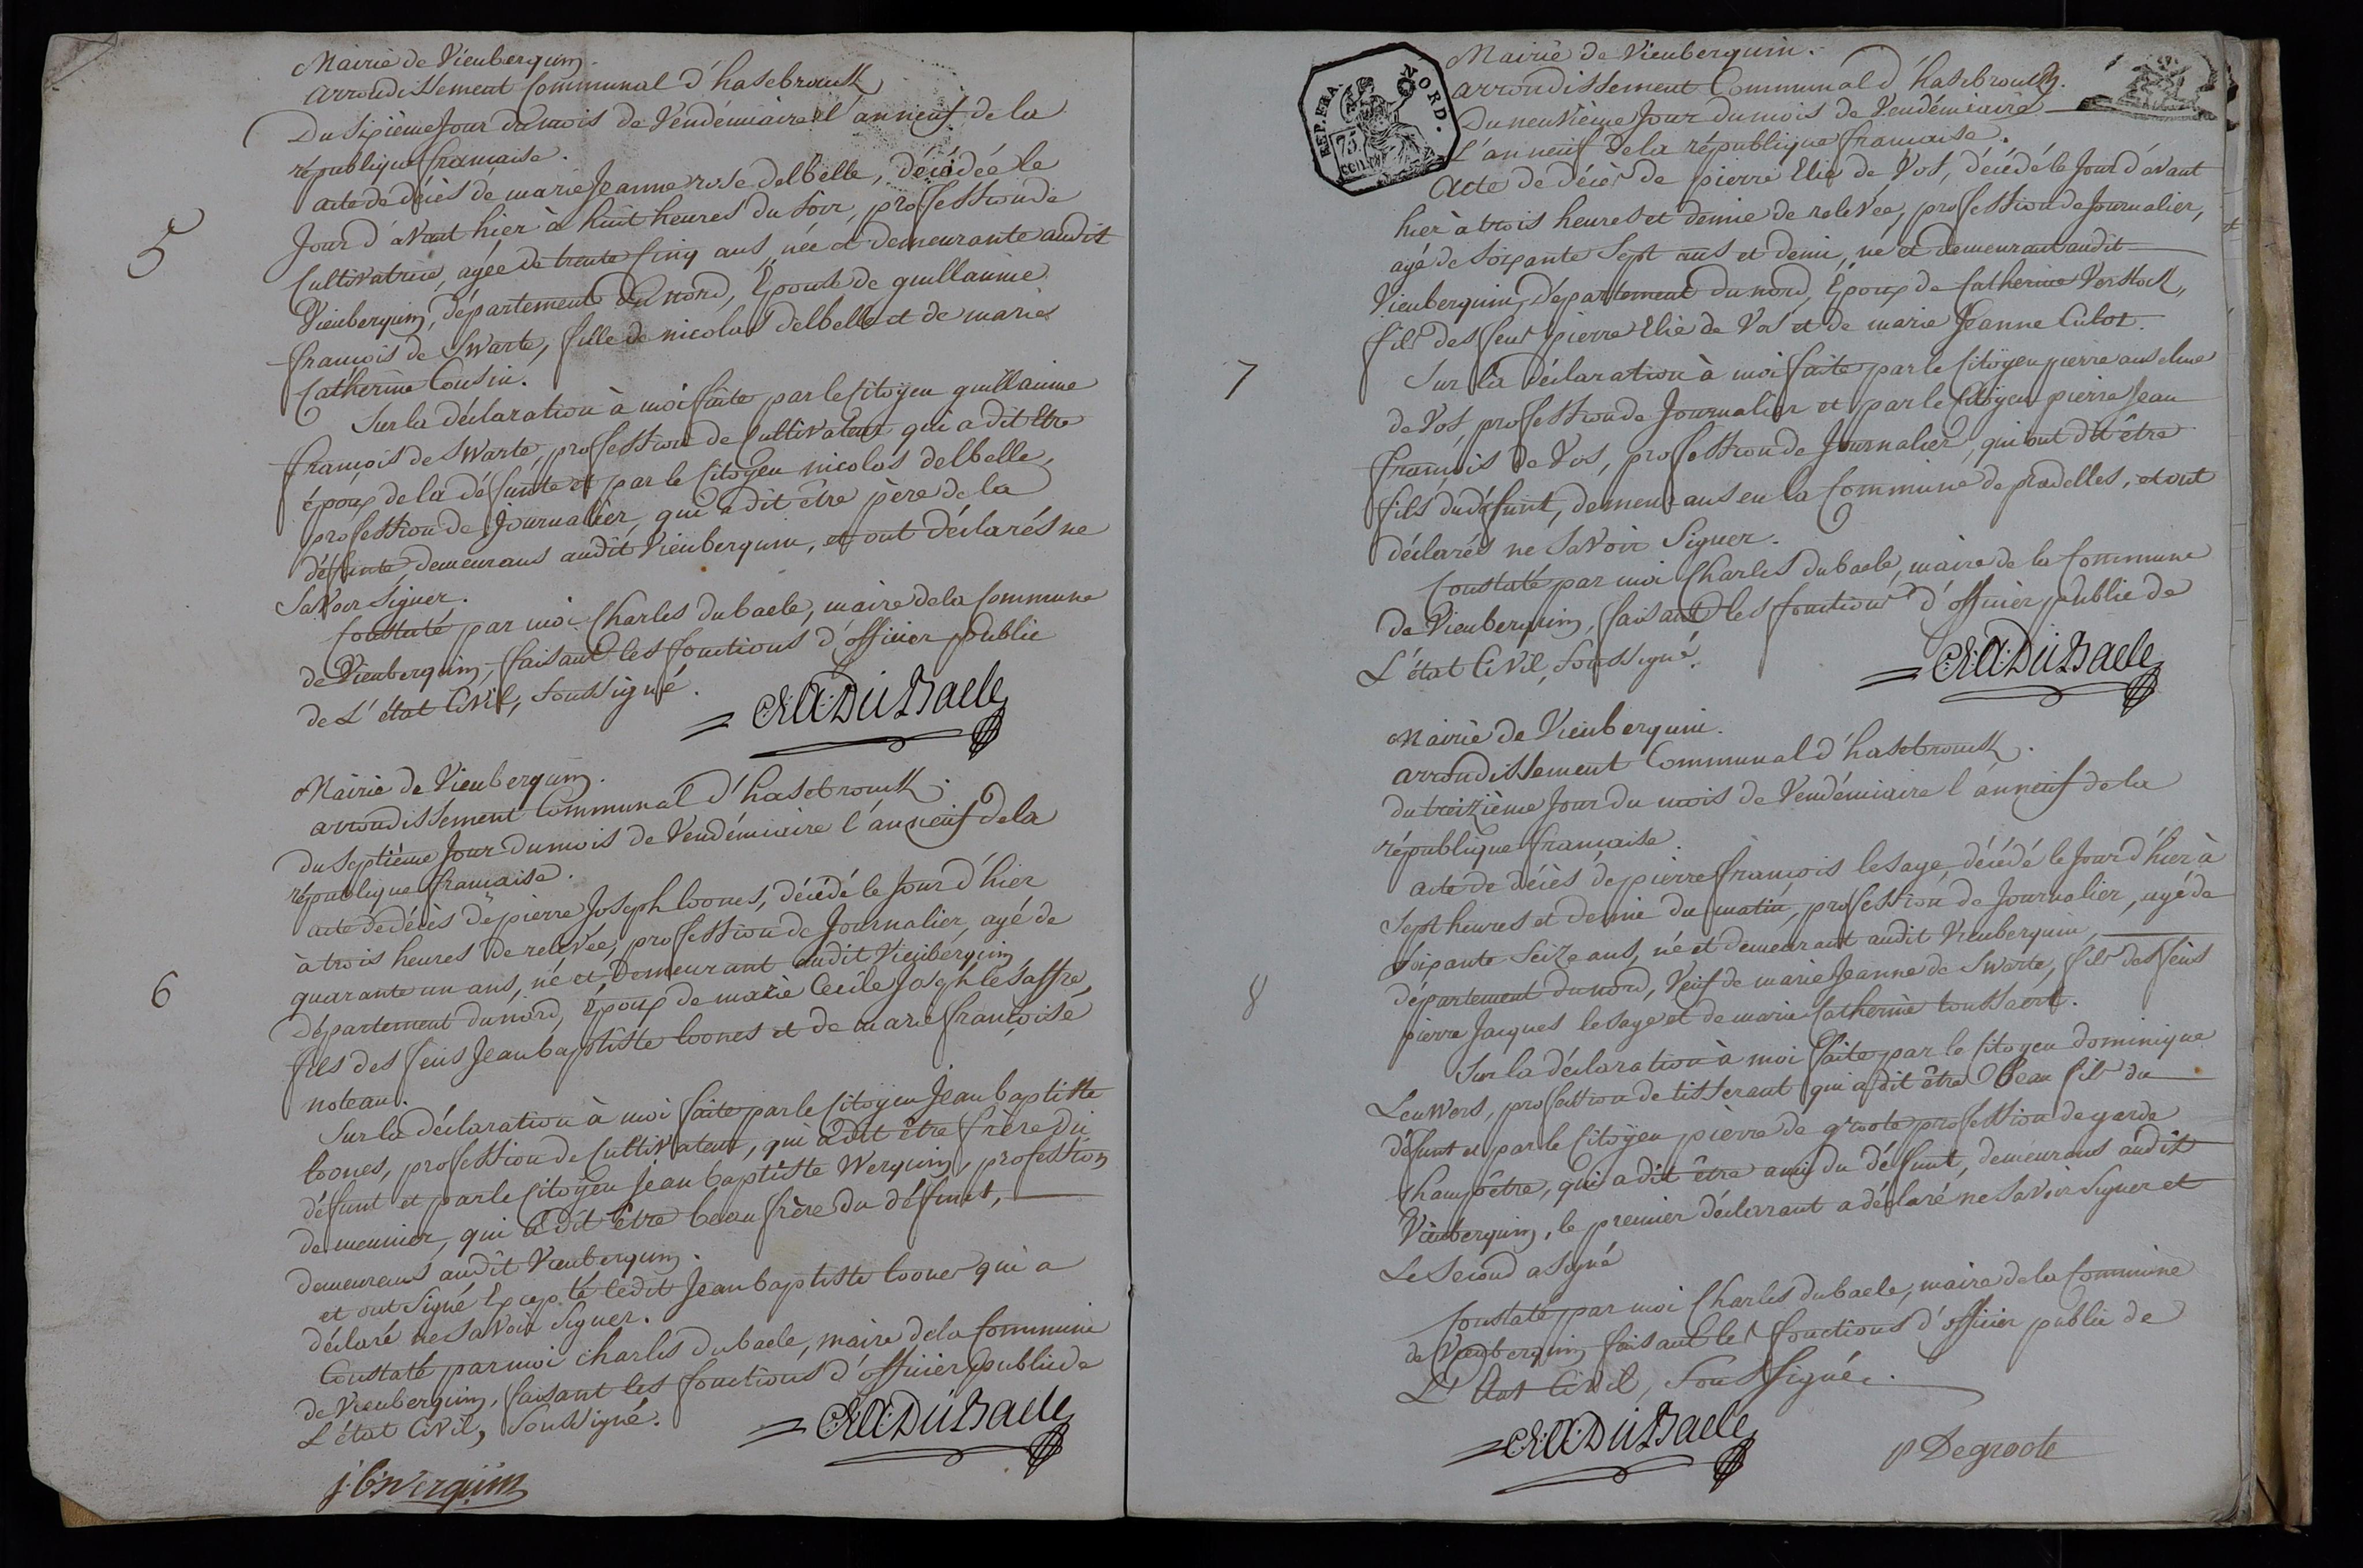 Mairie de Vieuberquin.
arrondissement Communal d'hasebrouck
Du Sixième Jour du mois de Vendémiaire l'an neuf de la
république française.
acte de décès de marie Jeanne rose delbelle, décédée le
Jour d'avant hier à huit heures du soir, profession de
Cultivatrice, agée de trente Cinq ans, née et demeurante audit
Vieuberquin, département du nord, Epouse de guillaume
françois de Swarte, fille de nicolas delbelle et de marie
Catherine Cousin.
5
Sur la déclaration à moi faite par le Citoÿen guillaume
françois de Swarte, profession de Cultivateur qui a dit être
époux de la défunte et par le Citoÿen nicolas delbelle,
profession de Journalier, qui a dit être père de la
défunte demeurans audit Vieuberquin, et ont déclarés ne
savoir signer.
Constaté par moi Charles dubaele, maire de la Commune
de Vieuberquin, faisant les fonctions d'officier public
de L'état Civil, Soussigné.
Ch: A: DuBaele
Mairie de Vieuberquin.
arrondissement Communal d'hasebrouck.
du Septième Jour du mois de Vendémiaire l'an neuf de la
république française.
acte de décès de pierre Joseph loones, décédé le Jour d'hier
à trois heures de relevée, profession de Journalier, agé de
quarante un ans, né et demeurant audit Vieuberquin
6
département du nord, Epoux de marie Cecile Joseph lesaffre,
fils des feus Jean baptiste loones et de marie françoise
noteau.
Sur la déclaration à moi faite par le Citoÿen Jean baptiste
loones, profession de Cultivateur, qui a dit être frère du
défunt et par le Citoÿen Jean baptiste Werquin, profession
de meunier, qui a dit être beau frère du défunt,
demeurans audit Vieuberquin.
et ont signé Excepté ledit Jean baptiste loones qui a
déclaré ne savoir signer.
Constaté par moi charles dubaele, maire de la Commune
de Vieuberquin, faisant les fonctions d'officier public de
L'état Civil, Soussigné.
Ch: A: DuBaele
j: b: werquin
REP. FRA.
NORD.
75
CENT.
Mairie de Vieuberquin.
arrondissement Communal d'hasebrouck.
Du neuvième Jour du mois de Vendémiaire
L'an neuf de la république française.
Acte de décès de pierre Elie de Vos, décédé le Jour d'avant
hier à trois heures et demie de relevée, profession de Journalier,
agé de soixante Sept ans et demi, né et demeurant audit
Vieuberquin, département du nord, Epoux de Catherine Verstock,
fils des feus pierre Elie de Vos et de marie Jeanne Culot.
7
Sur la déclaration à moi faite par le Citoÿen pierre anselme
de Vos, profession de Journalier et par le Citoÿen pierre Jean
françois de Vos, profession de Journalier, qui ont dit être
fils du défunt, demeurans en la Commune de pradelles, et ont
déclarés ne Savoir Signer.
Constaté par moi Charles dubaele, maire de la Commune
de Vieuberquin, faisant les fonctions d'officier public de
L'état Civil, Soussigné.
Ch: A: DuBaele
Mairie de Vieuberquin.
arrondissement Communal d'hasebrouck.
du treizième Jour du mois de Vendémiaire l'an neuf de la
république française.
acte de décès de pierre françois lesage, décédé le Jour d'hier à
Sept heures et demie du matin, profession de Journalier, agé de
soixante Seize ans, né et demeurant audit Vieuberquin,
8
département du nord, Veuf de marie Jeanne de Swarte, fils des feus
pierre Jacques lesage et de marie Catherine toussaert.
Sur la déclaration à moi faite par le Citoyen dominique
Leuwers, profession de tisserant qui a dit être Beau fils du
défunt et par le Citoÿen pierre de groote profession de garde
Champêtre, qui a dit être ami du défunt, demeurans audit
Vieuberquin, le premier déclarant a déclaré ne Savoir Signer et
Le Second a Signé
Constaté par moi Charles dubaele, maire de la Commune
de Vieuberquin faisant les fonctions d'officier public de
L'état Civil, Soussigné.
Ch: A: DuBaele
p Degroote